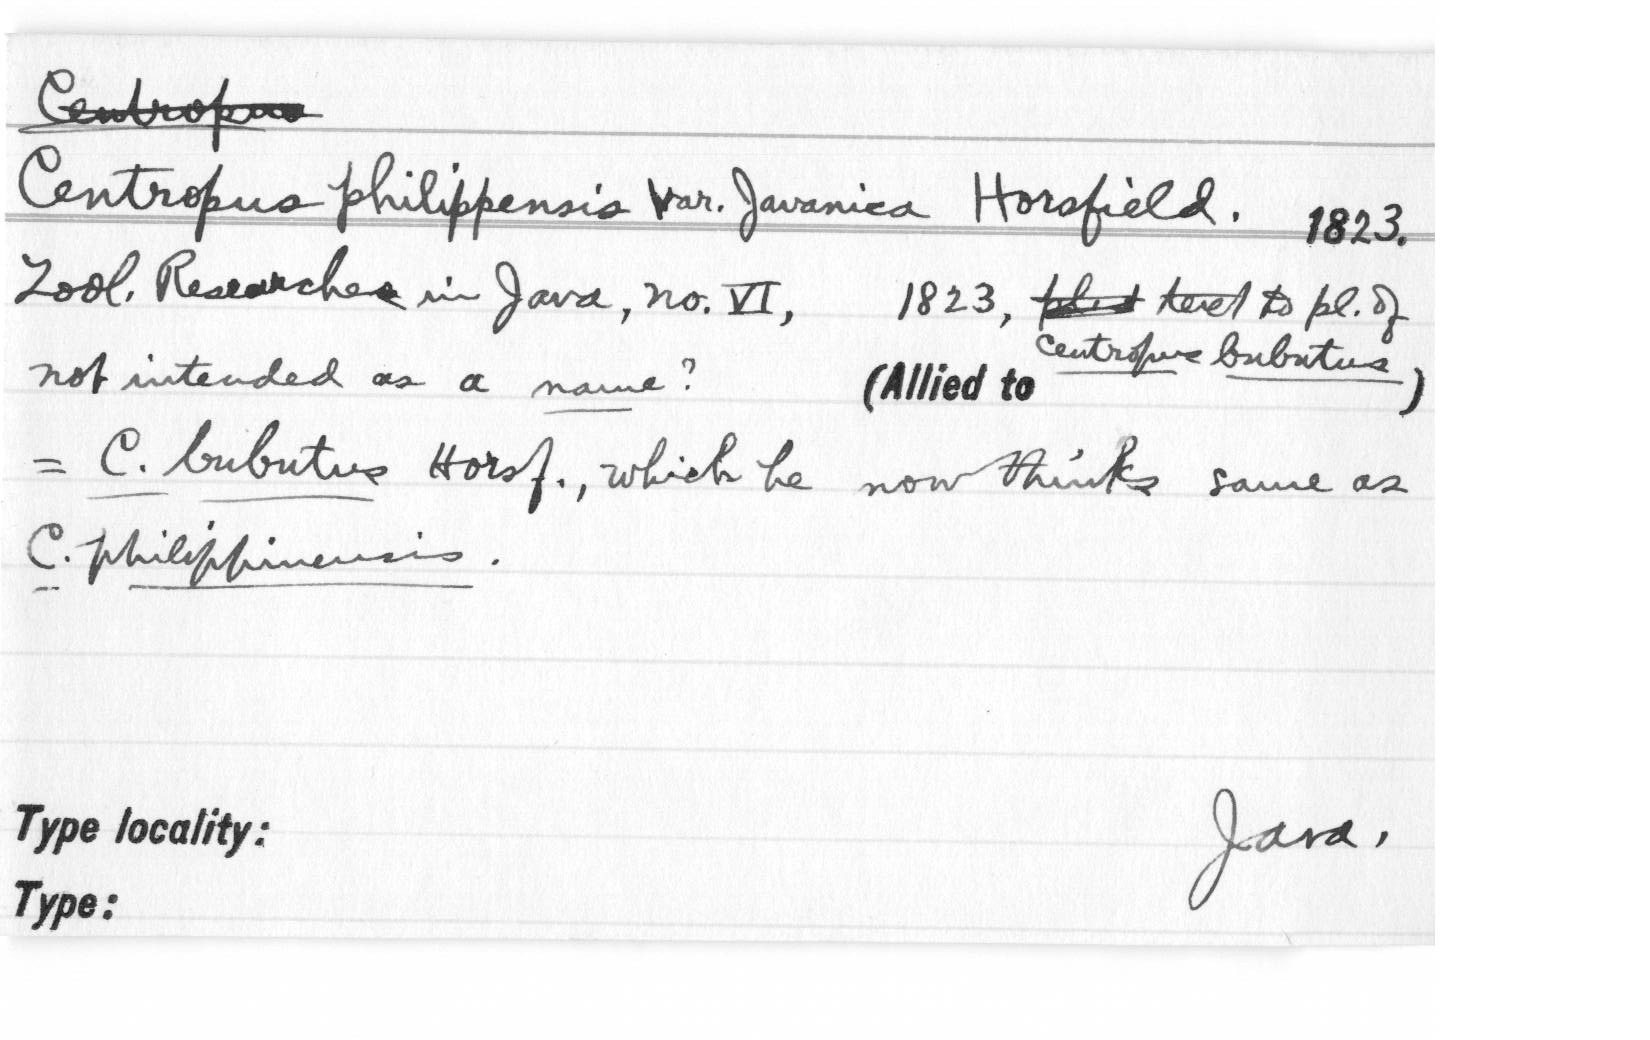 Centropus
Centropus philippensis Var. Javanica Horsfield. 1823.
Zool. Researches in Java, no. VI, 1823, text to pl. of
Centropus bubutus
not intended as a name? (Allied to )
= C. bubutus Horsf., which he now thinks same as
C. philippinensis.
Type locality: Java,
Type: